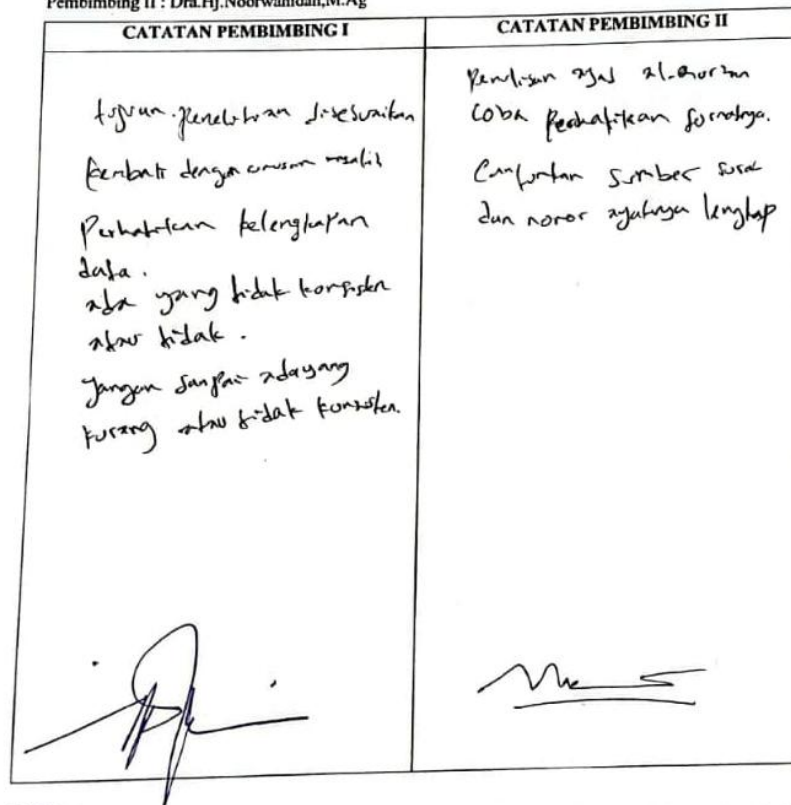 Pembimbing II : Dra.Hj.Noorwahidah,M.Ag
CATATAN PEMBIMBING I
tujuan penelitian disesuaikan
kembali dengan rumusan masalah
Perhatikan kelengkapan
data.
ada yang tidak konsisten
atau tidak.
Jangan sampai ada yang
kurang atau tidak konsisten.
CATATAN PEMBIMBING II
Penulisan ayat al-Quran
coba Perhatikan formatnya.
Cantumkan sumber surat
dan nomor ayatnya lengkap